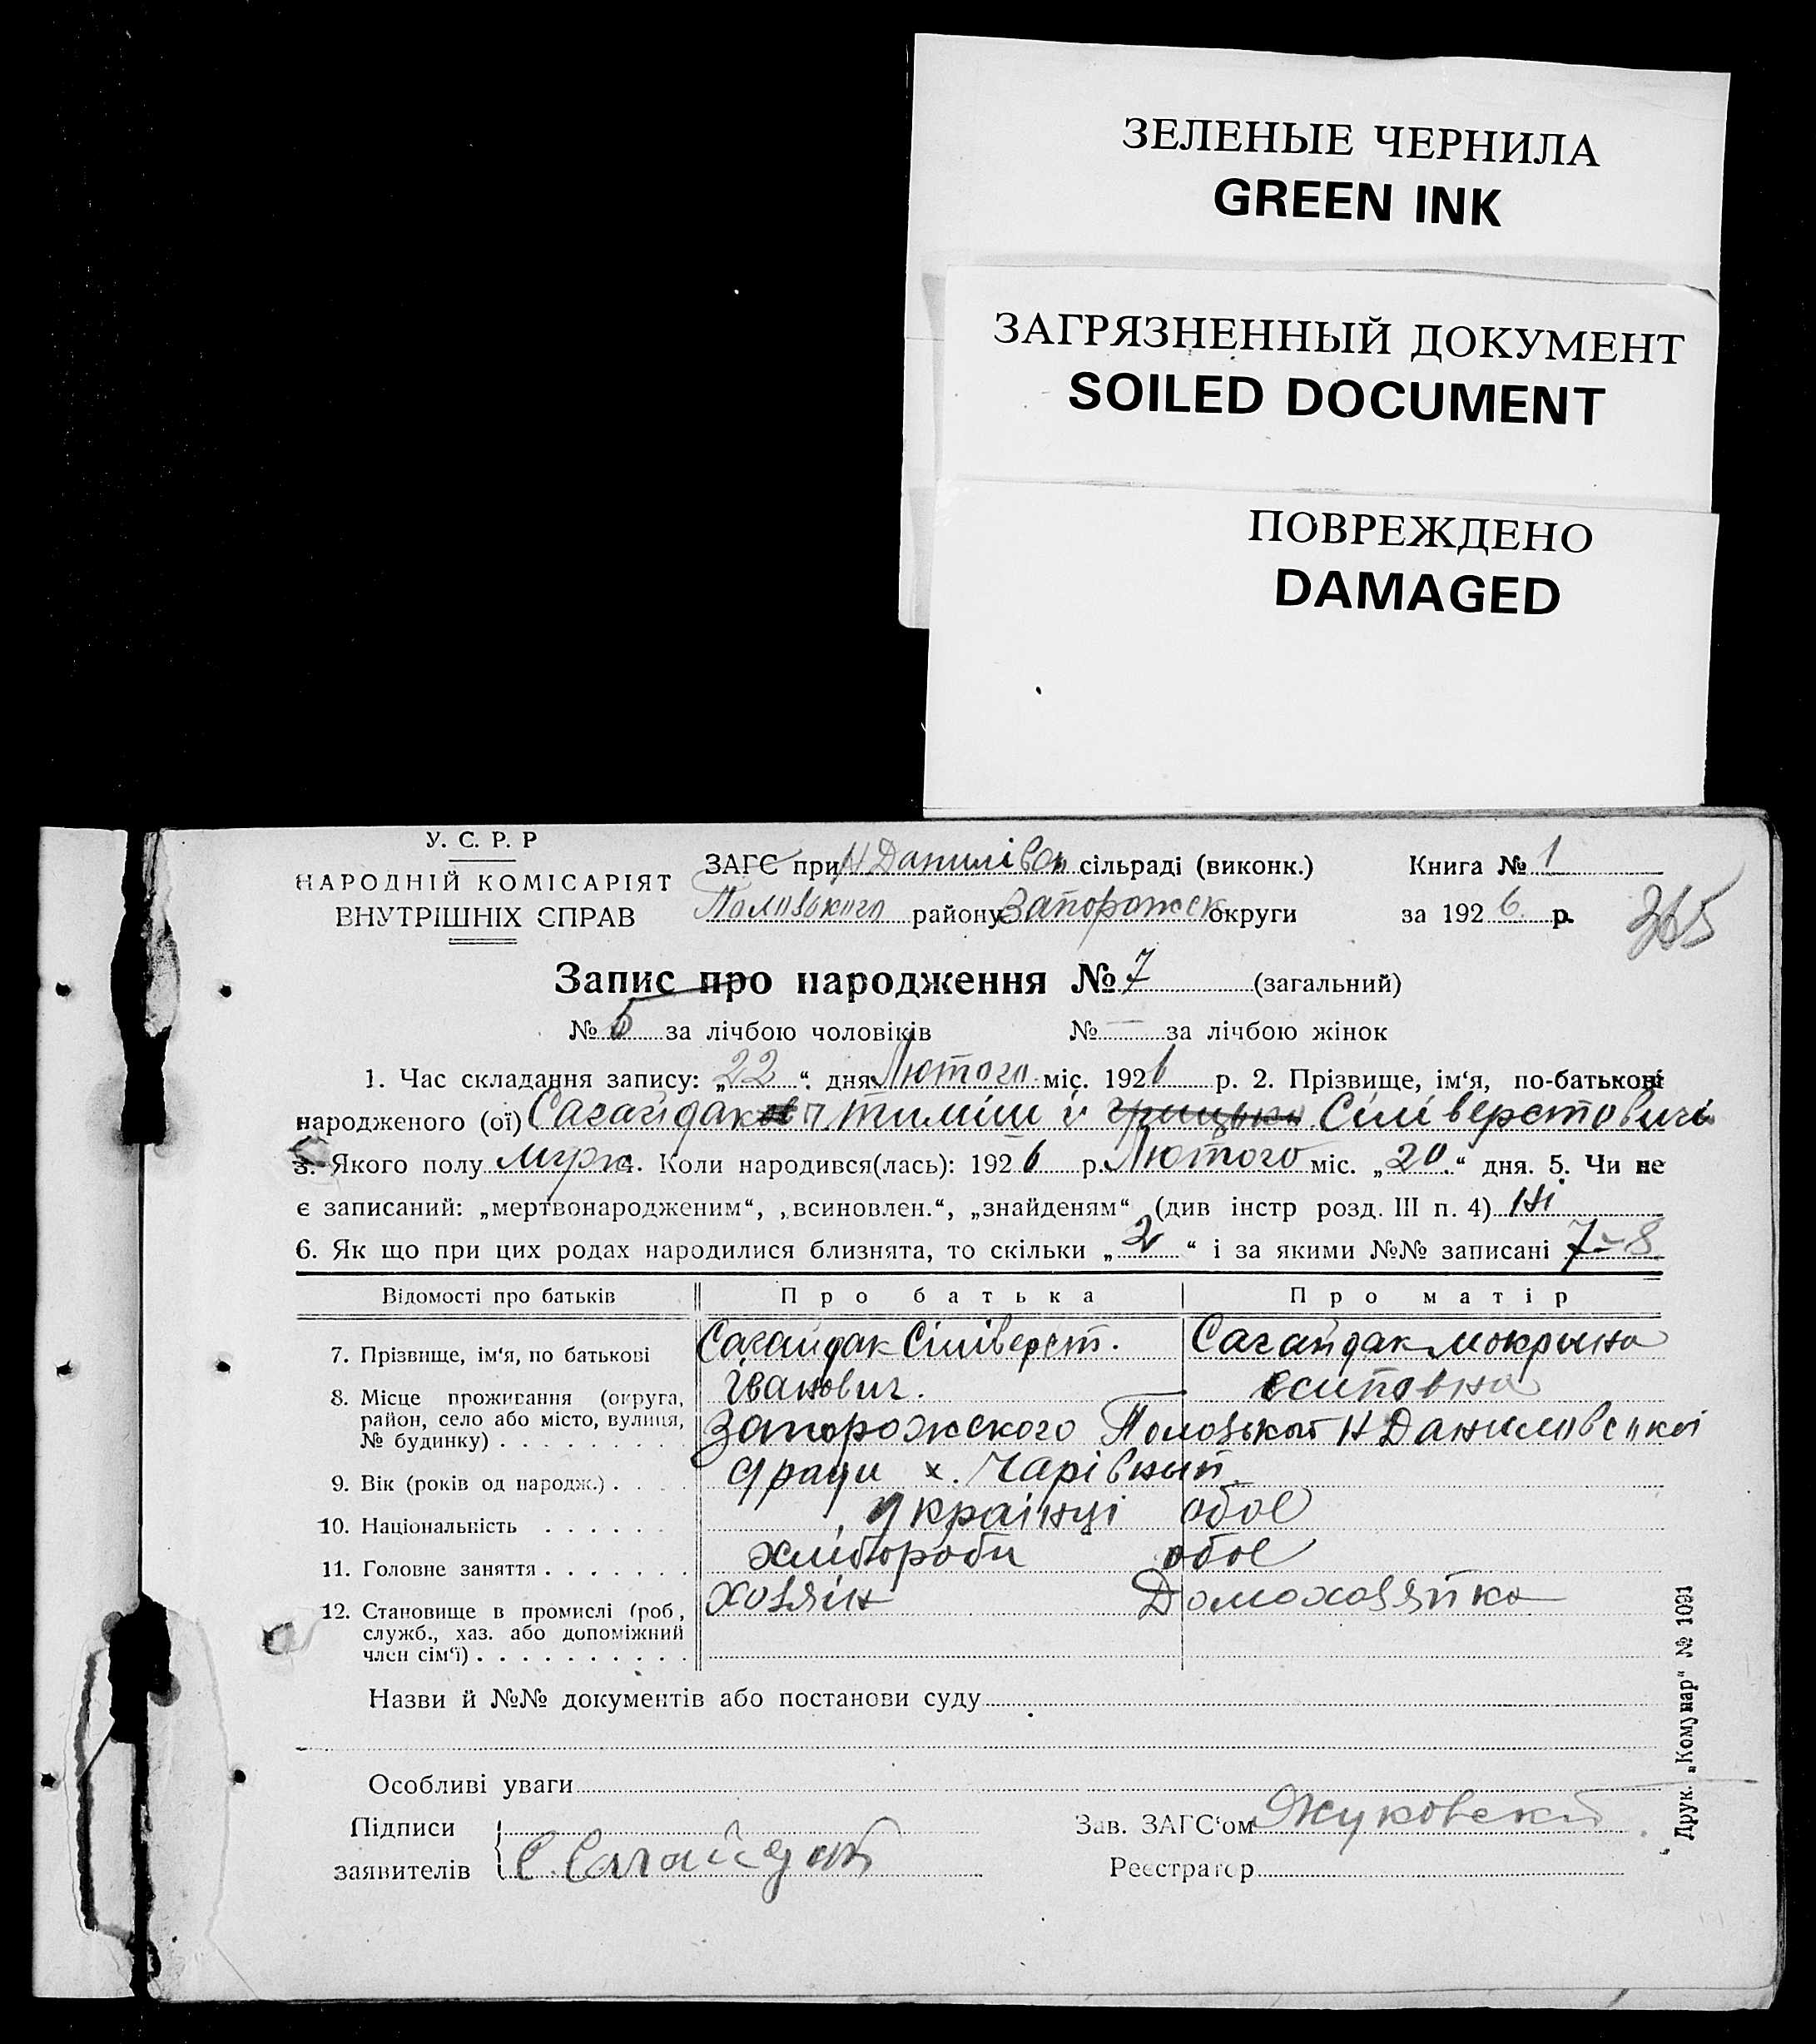 ЗЕЛЕНЫЕ ЧЕРНИЛА
GREEN INK
ЗАГРЯЗНЕННЫЙ ДОКУМЕНТ
SOILED DOCUMENT
ПОВРЕЖДЕНО
DAMAGED
У. С. Р. Р
НАРОДНІЙ КОМІСАРІЯТ
ВНУТРІШНІХ СПРАВ
ЗАГС при Н Данилівск сільраді (виконк.)
району Запорожск округи
Книга № 1
за 1926 р.
365
Запис про народження № 7 (загальний)
№ 5 за лічбою чоловіків № — за лічбою жінок
1. Час складання запису: „22“ дня Лютого міс. 1926 р. 2. Прізвище, ім‘я, по-батькові
народженого (ої) Сагайдак Тиміш і грицько Сілівер­стовичі
3. Якого полу мужс 4. Коли народився(лась): 1926 р. Лютого міс. „20“ дня. 5. Чи не
є записаний: „мертвонародженим“, „всиновлен.“, „знайденям“ (див інстр розд. III п. 4) Ні
6. Як що при цих родах народилися близнята, то скільки „2“ і за якими №№ записані 7-8
Відомості про батьків Про батька Про матір
7. Прізвище, ім‘я, по батькові Сагайдак Сілівер­ст. Сагайдак Мокрина
Іванович. Єсиповна
8. Місце проживання (округа,
район, село або місто, вулиця,
№ будинку) . . . . . . . . .
Запорожского Пологського Н Даниловської
ради х. Чарівний
9. Вік (років од народж.) . . . .
10. Національність . . . . . . українці обоє
11. Головне заняття . . . . . . . хлібороби обоє
12. Становище в промислі (роб,
служб., хаз. або допоміжний
член сім‘ї) . . . . . . . . . .
хозяїн Домохозяйка
Назви й №№ документів або постанови суду
Особливі уваги
Підписи
заявителів С Сагайдак
Зав. ЗАГС‘ом Жуковский
Реєстратор
Друк. „Комунар“ № 1091